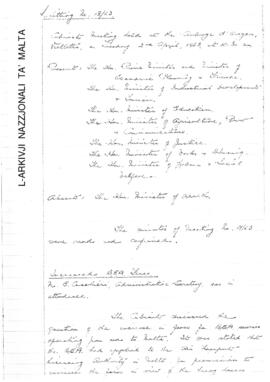 L-ARKIVJI NAZZJONALI TA' MALTA
Sitting No. 18/63
Cabinet Meeting held at the Auberge d'Aragon,
Valletta, on Tuesday 2nd April, 1963, at
Present: The Hon. Prime Minister and Minister of
Economic Planning & Finance.
The Hon. Minister of Industrial Development
& Tourism.
The Hon. Minister of Education.
The Hon. Minister of Agriculture, Power
& Communications.
The Hon. Minister of Justice.
The Hon. Minister of Works & Housing.
The Hon. Minister of Labour & Social
Welfare.
Absent: The Hon. Minister of Health.
The minutes of meeting No.
were read and confirmed.
Increased BEA Fares
Administrative Secretary was in
attendance.
The Cabinet discussed the
question of the increase in fares for BEA services
operating from and to Malta. It was stated that
the BEA had applied to the Air Transport
Licensing Authority in Malta for permission to
increase the fares in view of the heavy losses